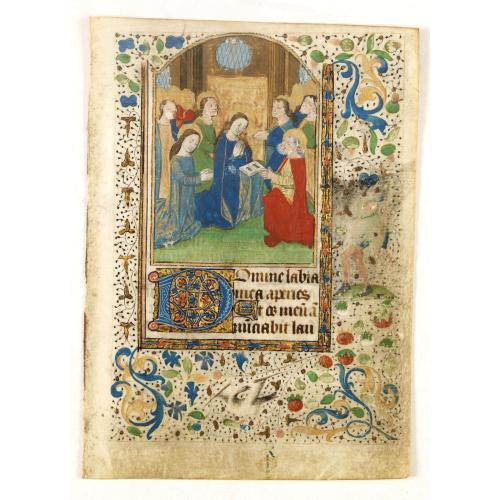 Domine labia
mea aperies
Et os meū a
nūciabit lau